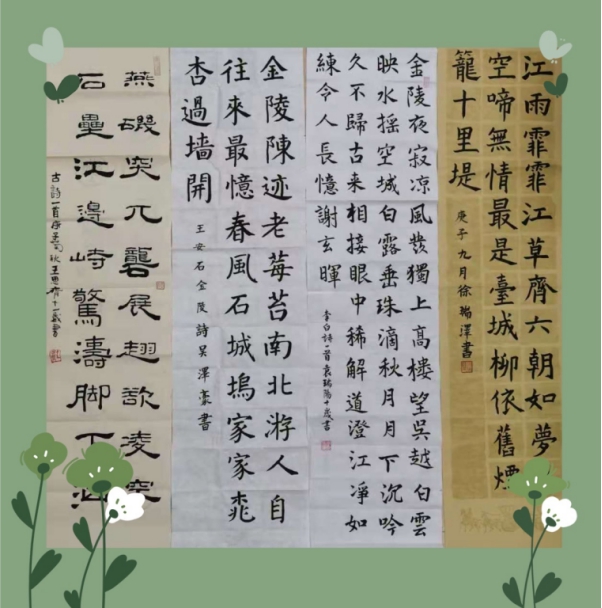 江雨霏霏江草齊六朝如夢
空啼無情最是臺城柳依舊煙
籠十里堤
庚子九月徐瑞澤書
金陵夜寂凉風發獨上高樓望吳越白雲
映水摇空城白露垂珠滴秋月月下沉吟
久不歸古来相接眼中稀解道澄江凈如
練令人長憶謝玄暉
李白詩一首袁瑞陽十歲書
金陵陳迹老莓苔南北游人自
往來最憶春風石城塢家家桃
杏過墙開
王安石金陵詩吴澤豪書
燕磯突兀礱展翅欲凌空
石壘江邊峙驚濤脚下汹
古詩一首庚子初秋王思齊十一歲書